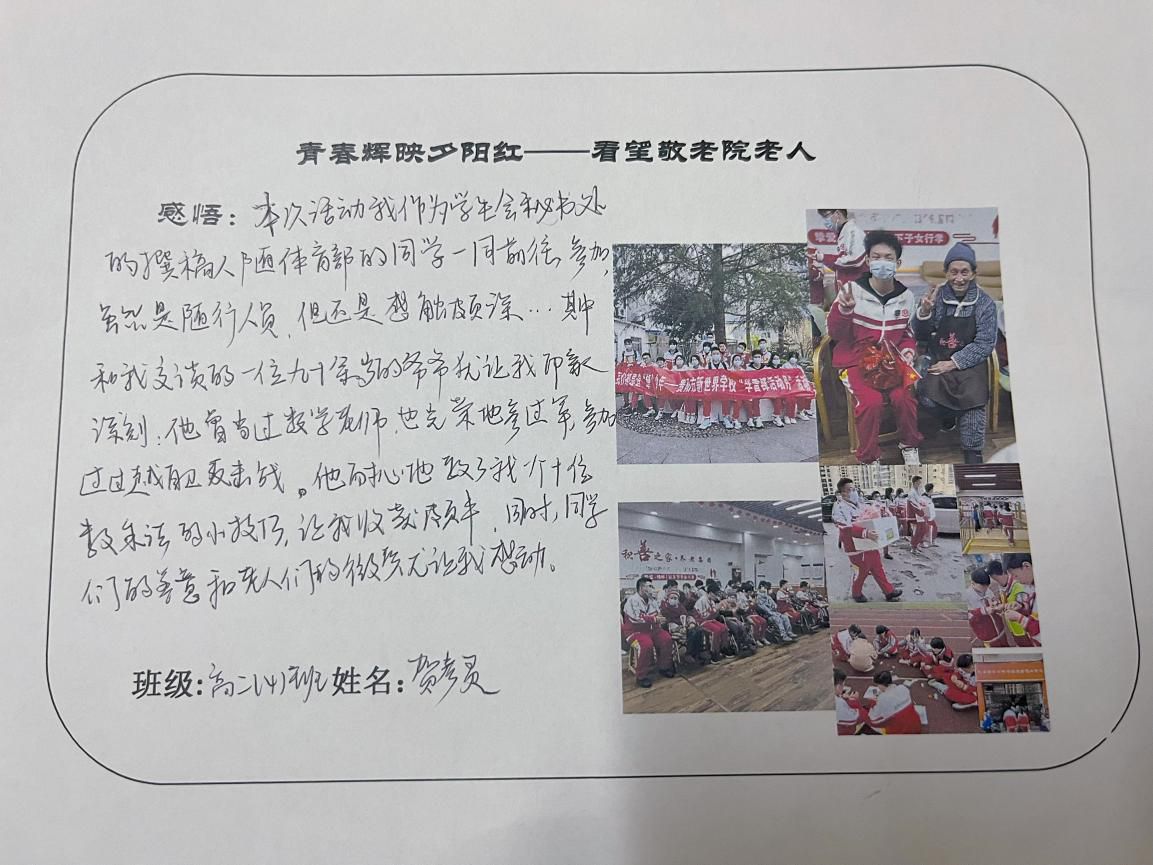 青春辉映夕阳红——看望敬老院老人
感悟：本次活动我作为学生会秘书处
的撰稿人随体育部的同学一同前往参加，
虽然是随行人员，但还是感触颇深…其中
和我交谈的一位九十余岁的爷爷尤让我印象
深刻：他曾当过数学老师，也光荣地参过军，参加
过过越自卫反击战。他耐心地教了我一个十位
数乘法的小技巧，让我收获颇丰，同时，同学
们的善意和老人们的微笑尤让我感动。
班级：高二（4）班 姓名：
下子女行孝
积善之家·养老集团